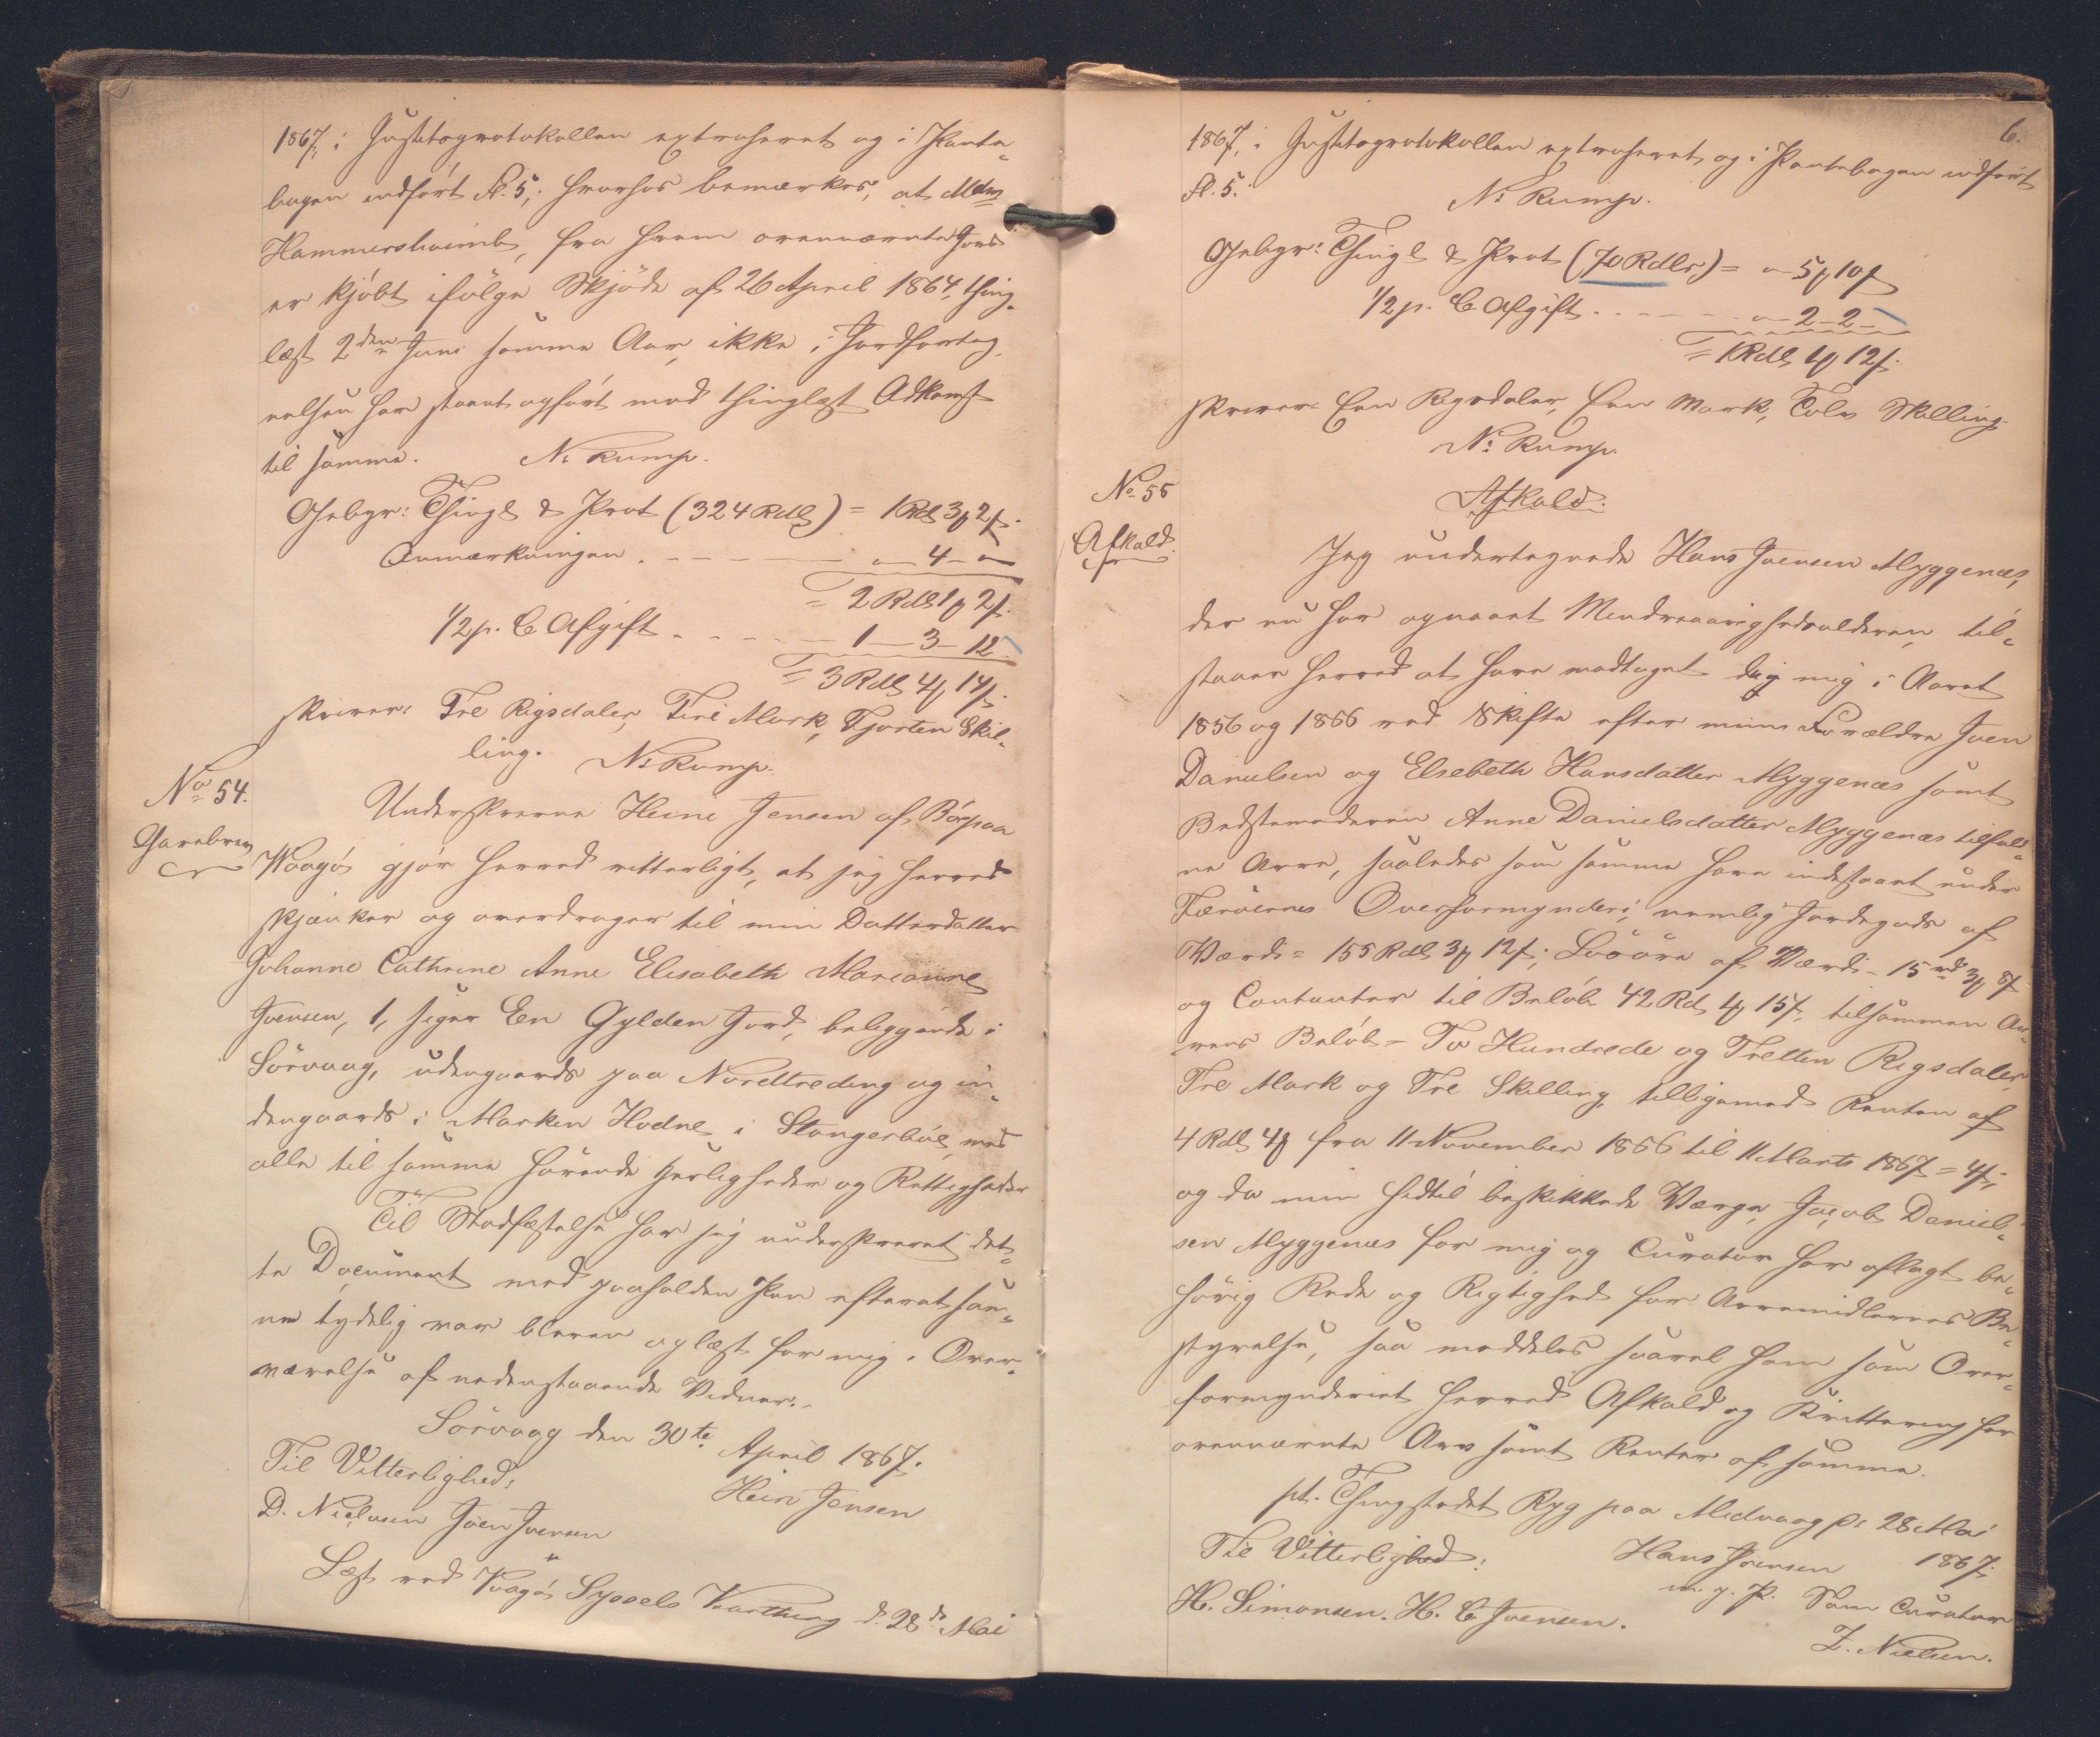 1867, i Justitsprotokollen extraheret og i Pante-
bogen indført Fl. 5; hvorhos bemærkes, at Mdm
Hammershaimb, fra hvem ovennævnte Jord
er kjøbt ifølge Skjøde af 26 April 1864, thing-
læst 2den Juni samme Aar, ikke i Jordforteg-
nelsen har staaet opført med thinglæst Adkomst
til samme. N. Rump.
Gebyr: Thingl & Prot (324 Rdlr) = 1 Rd 3 ₰ 2 ß.
Anmærkningen . - - - - " - 4 - "
= 2 Rdl 1 ₰ 2 ß.
1/2 p. C. Afgift . - - - 1 - 3 - 12
= 3 Rdl 4 ₰ 14 ß.
skriver: Tre Rigsdaler, Fire Mark, Fjorten Skil-
ling. N. Rump.
No 54.
Gavebrev
Underskrevne Heine Jensen af Bø paa
Waagø gjør herved vitterligt, at jeg herved
skjænker og overdrager til min Datterdatter
Johanne Cathrine Anne Elisabeth Marianne
Joensen, 1, siger Een Gylden Jord, beliggende i
Sørvaag, udengaards paa Nordtreding og in-
dengaards i Marken Hodne i Stangerbøe, med
alle til samme hørende Herligheder og Rettigheder
Til Stadfæstelse har jeg underskrevet det-
te Document med paaholden Pen efterat sam-
me tydelig var bleven oplæst for mig i Over-
værelse af nedenstaaende Vidner.
Sørvaag den 30te April 1867.
Til Vitterlighed: Hein Jensen
D. Nielsen Joen Joensen
Læst ved Vaagø Syssels Vaarthing d. 28de Mai
6.
1867, i Justitsprotokollen extraheret og i Pantebogen indført
Fl. 5. N. Rump.
Gebyr: Thingl & Prot (70 Rdlr) = " - 5 ₰ 10 ß
1/2 p. C. Afgift . - - - - " - 2 - 2 -
= 1 Rdl 1 ₰ 12 ß.
skriver: Een Rigsdaler, Een Mark, Tolv Skilling.
N. Rump.
No 55
Afkald.
Afkald.
Jeg undertegnede Hans Joensen Myggenæs,
der nu har opnaaet Mindreaarighedsalderen, til-
staaer herved at have modtaget den mig i Aaret
1856 og 1866 ved Skifte efter mine Forældre Joen
Danielsen og Elsebeth Hansdatter Myggenæs samt
Bedstemoderen Anne Danielsdatter Myggenæs tilfald-
ne Arve, saaledes som samme have indestaaet under
Færøernes Overformynderi, nemlig Jordegods af
Værdi = 155 Rdl 3 ₰ 12 ß; Løsøre af Værdi - 15 rd 3 ₰ 8 ß
og Contanter til Beløb 42 Rd 4 ₰ 15 ß, tilsammen Ar-
vens Beløb - To Hundrede og Tretten Rigsdaler,
Tre Mark og Tre Skilling, tilligemed Renten af
4 Rdl 4 ₰ fra 11 November 1866 til 11 Marts 1867 = 4 ß;
og da min hidtil beskikkede Værge, Jacob Daniel-
sen Myggenæs for mig og Curator har aflagt be-
hørig Rede og Rigtighed for Arvemidlernes Be-
styrelse, saa meddeles saavel ham som Over-
formynderiet herved Afkald og Kvittering for
ovennævnte Arv samt Renter af samme.
pt. Thingstedet Ryg paa Midvaag d. 28 Mai
Til Vitterlighed: Hans Joensen 1867.
H. Simonsen. H. C. Joensen. m. p. P. Som Curator
Z. Nielsen.